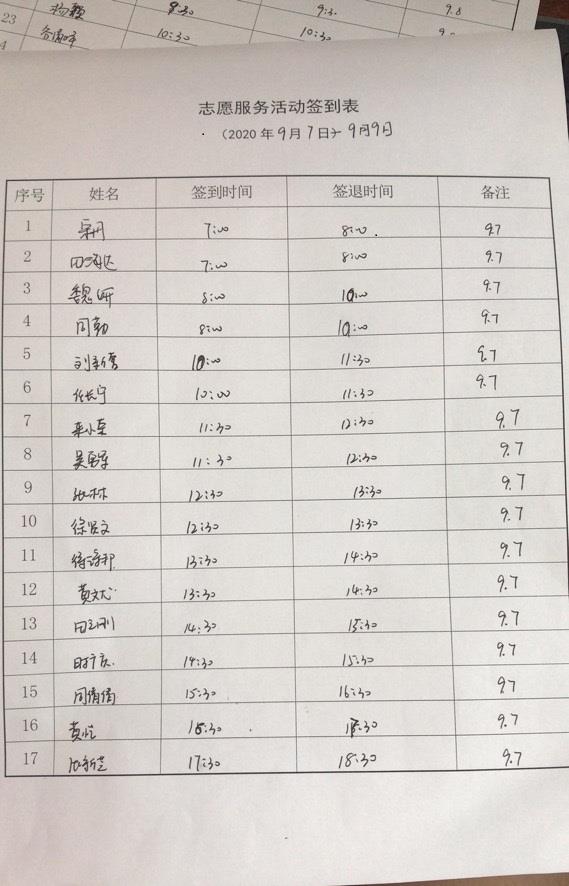 23 杨颖 8:30 9:30 9.8
4 10:30 10:30
志愿服务活动签到表
(2020年9月7日)-9月9日
序号 姓名 签到时间 签退时间 备注
1 7:00 8:00 9.7
2 7:00 8:00 9.7
3 魏妍 8:00 10:00 9.7
4 闫勤 8:00 10:00 9.7
5 10:00 11:30 9.7
6 任长宁 10:00 11:30 9.7
7 11:30 12:30 9.7
8 11:30 12:30 9.7
9 张林 12:30 13:30 9.7
10 徐贤文 12:30 13:30 9.7
11 13:30 14:30 9.7
12 13:30 14:30 9.7
13 14:30 15:30 9.7
14 14:30 15:30 9.7
15 闫倩倩 15:30 16:30 9.7
16 :30 :30 9.7
17 17:30 18:30 9.7